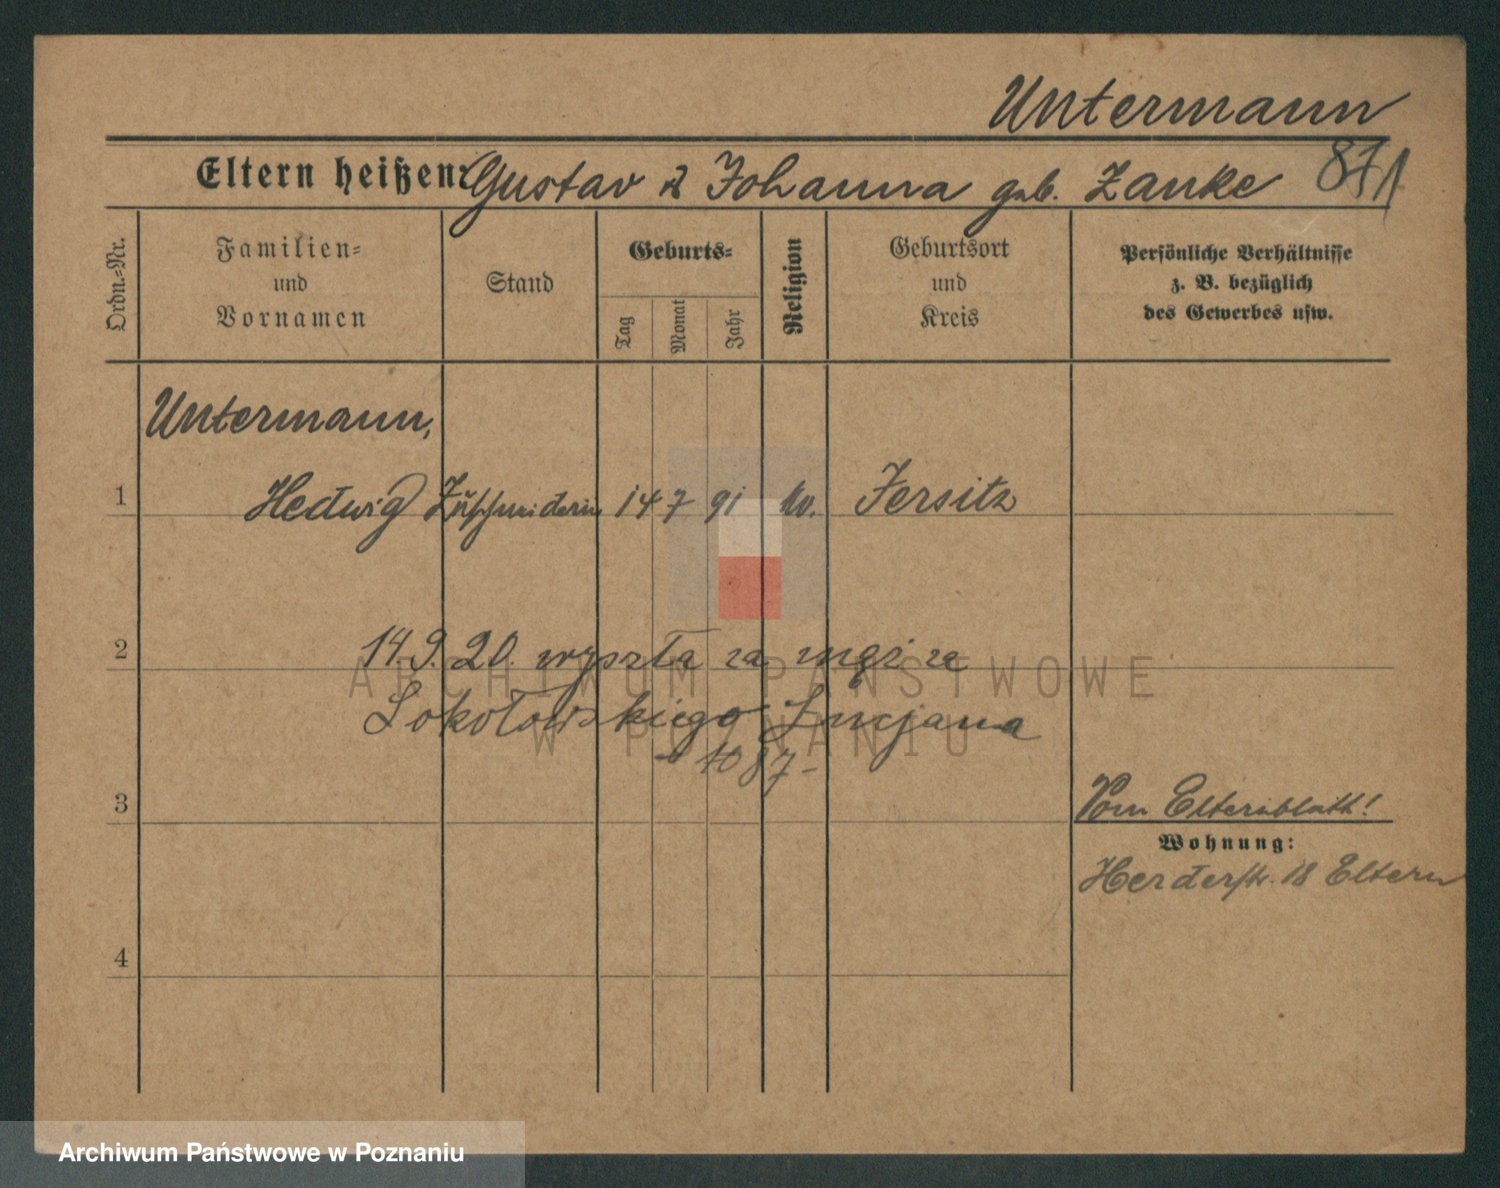 Untermann
Eltern heißen: Gustav & Johanna geb. Zanke 871
Ordn.=Nr.
Familien=
und
Vornamen
Stand
Geburts=
Tag
Monat
Jahr
Religion
Geburtsort
und
Kreis
Persönliche Verhältnisse
z. B. bezüglich
des Gewerbes usw.
Untermann,
1 Hedwig Zuschneiderin 14 7 91 Jersitz
2 14.9.20. wyszła za mąż za
Sokołowskiego Lucjana
1087-
3
Vom Elternblatt!
Wohnung:
Herderstr. 18 Eltern
4
ARCHIWUM PAŃSTWOWE
W POZNANIU
Archiwum Państwowe w Poznaniu